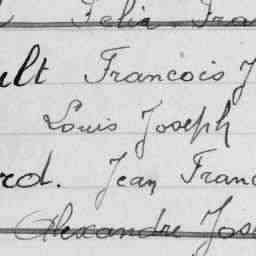 Felix Fra
ult François J
Louis Joseph
rd. Jean Franc
Alexandre Jos